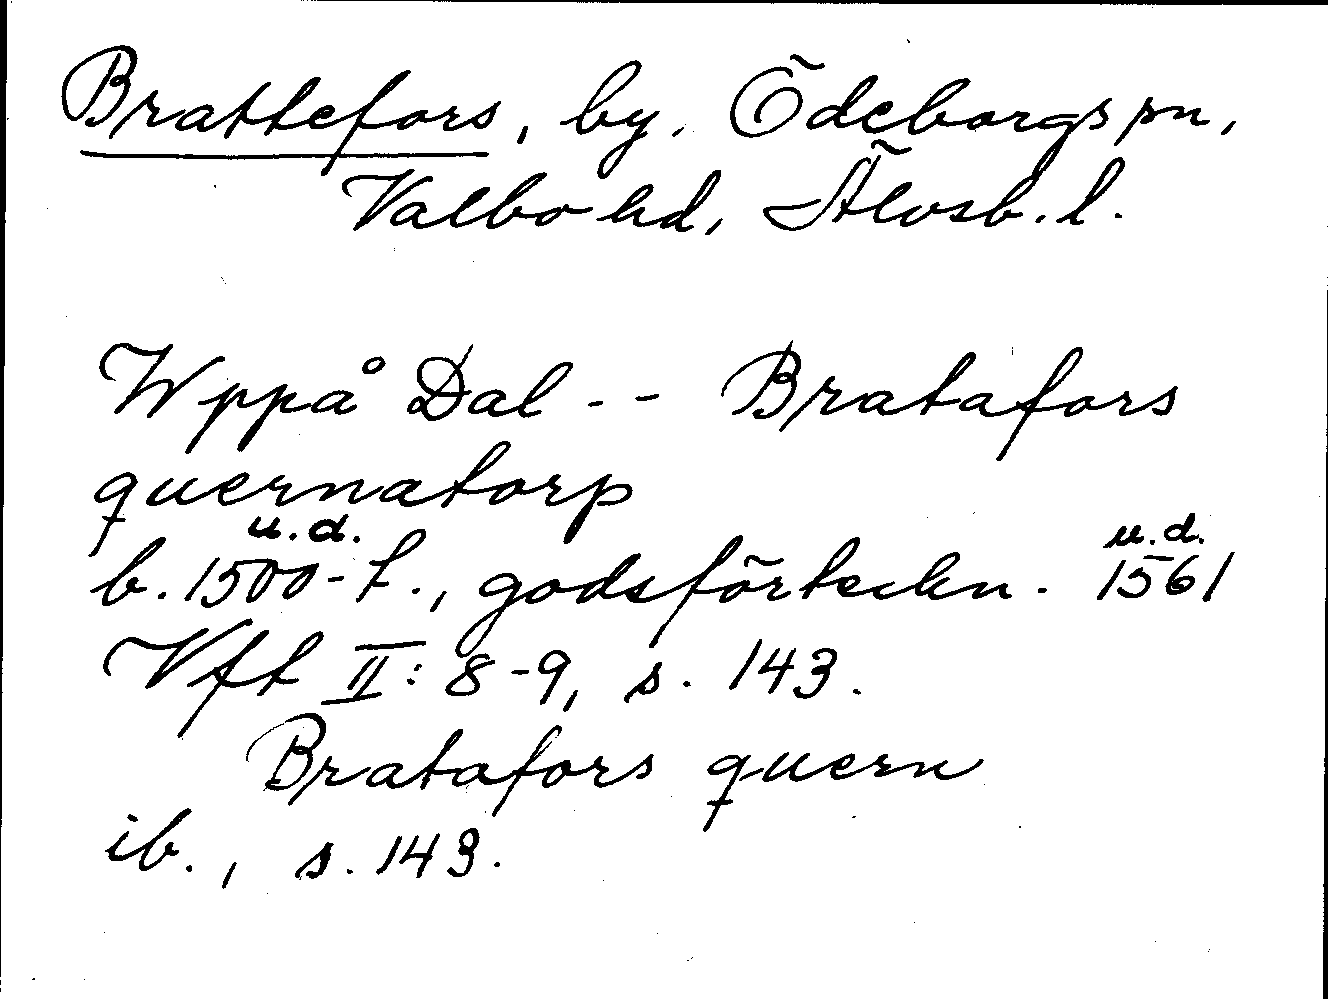 Brattefors, by. Ödeborgs pn,
Valbo hd, Älvsb. l.
Wppå Dal -- Bratafors
quernatorp
u.d. u.d.
b. 1500-t., godsförteckn. 1561
Vft II: 8-9, s. 143.
Bratafors quern
ib., s. 143.